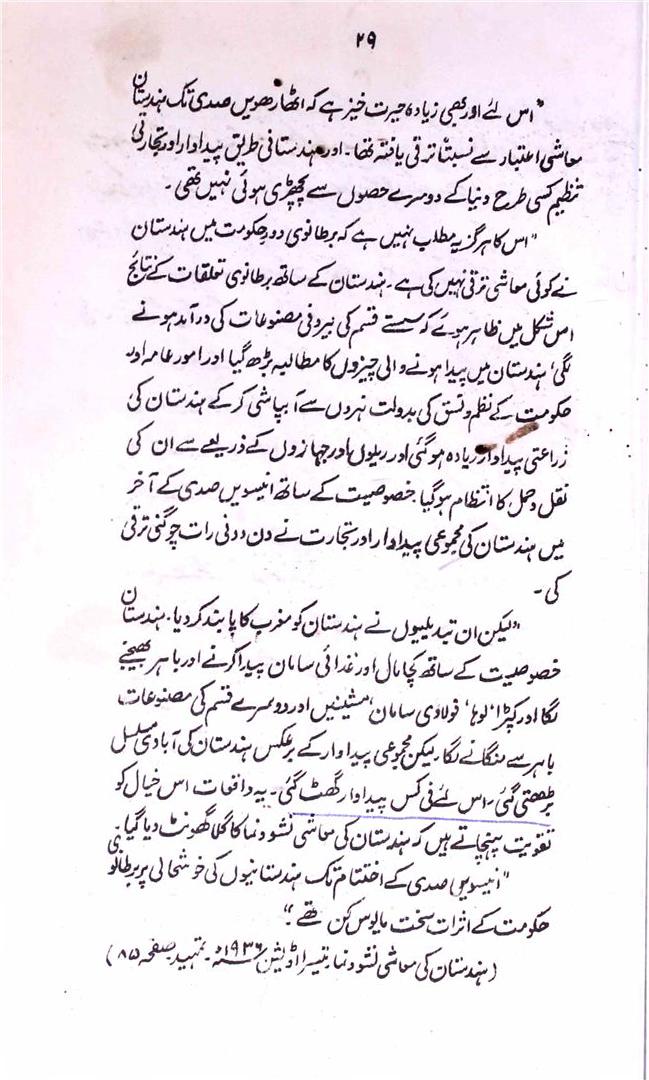 ۲۹
"اس لئے اور بھی زیادہ حیرت خیز ہے کہ اٹھارھویں صدی تک ہندستان
معاشی اعتبار سے نسبتاً ترقی یافتہ تھا۔ اور ہندستانی طریق پیداوار اور تجارتی
تنظیم کسی طرح دنیا کے دوسرے حصوں سے پچھڑی ہوئی نہیں تھی۔
"اس کا ہرگز یہ مطلب نہیں ہے کہ برطانوی دورِ حکومت میں ہندستان
نے کوئی معاشی ترقی نہیں کی ہے۔ ہندستان کے ساتھ برطانوی تعلقات کے نتائج
اس شکل میں ظاہر ہوئے کہ سستے قسم کی بیرونی مصنوعات کی درآمد ہونے
لگی، ہندستان میں پیدا ہونے والی چیزوں کا مطالبہ بڑھ گیا اور امور عامہ اور
حکومت کے نظم و نسق کی بدولت نہروں سے آبپاشی کر کے ہندستان کی
زراعتی پیداوار زیادہ ہو گئی اور ریلوں اور جہازوں کے ذریعے سے ان کی
نقل و حمل کا انتظام ہو گیا۔ خصوصیت کے ساتھ انیسویں صدی کے آخر
میں ہندستان کی مجموعی پیداوار اور تجارت نے دن دونی رات چوگنی ترقی
کی۔
"لیکن ان تبدیلیوں نے ہندستان کو مغرب کا پابند کر دیا۔ ہندستان
خصوصیت کے ساتھ کچا مال اور غذائی سامان پیدا کرنے اور باہر بھیجنے
لگا اور کپڑا، لوہا، فولادی سامان، مشینیں اور دوسرے قسم کی مصنوعات
باہر سے منگانے لگا۔ لیکن مجموعی پیداوار کے برعکس ہندستان کی آبادی مسلسل
بڑھتی گئی۔ اس لئے فی کس پیداوار گھٹ گئی۔ یہ واقعات اس خیال کو
تقویت پہنچاتے ہیں کہ ہندستان کی معاشی نشو و نما کا گلا گھونٹ دیا گیا۔
"انیسویں صدی کے اختتام تک ہندستانیوں کی خوشحالی پر برطانوی
حکومت کے اثرات سخت مایوس کن تھے۔"
(ہندستان کی معاشی نشو و نما۔ تیسرا اڈیشن ۱۹۳۶ء۔ تمہید۔ صفحہ ۸۵)